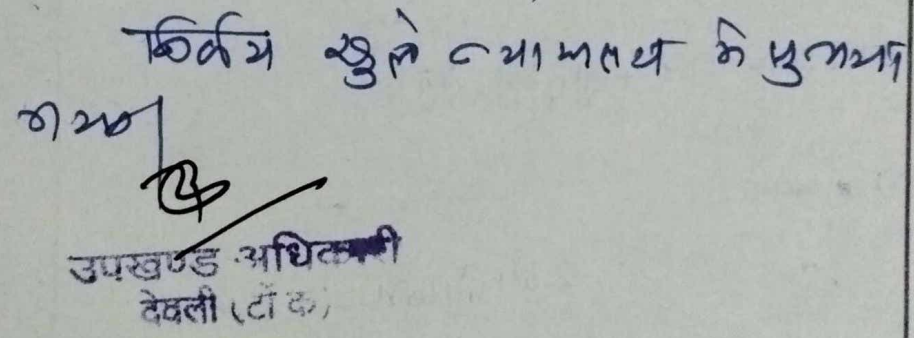 निर्णय खुले न्यायालय मे सुनाया
गया।
उपखण्ड अधिकारी
देवली (टोंक)